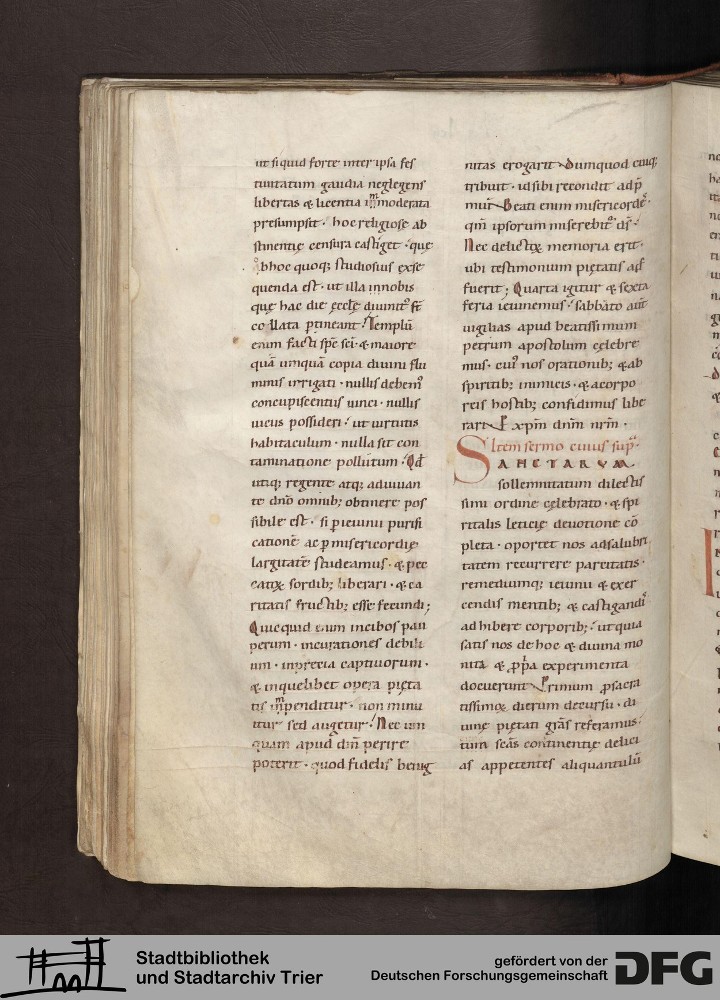 ut siquid forte inter ipsa fes
tiuitatum gaudia neglegens
libertas & licentia inmoderata
presumpsit · hoc religiosę ab
stinentię censura castiget · quę
obhoc quoq; studiosius exse
quenda est · ut illa innobis
quę hac die ecclę diuinit᷒ st̄
collata ꝑtineant · Templū
enim facti sp̄c sc̄i · & maiore
quā umquā copia diuini flu
minis irrigati · nullis debem᷒
concupiscentiis uinci · nullis
uiciis possideri · ut uirtutis
habitaculum · nulla sit con
taminatione pollutum · Qd̄
utiq; regente atq; adiuuan
te dn̄o omnib; obtinere pos
sibile est · si ꝑ ieiunii purifi
cationē ac ꝑ misericordię
largitatē studeamus · & pec
catis sordib; liberari · & ca
ritatis fructib; esse fecundi;
Quicquid enim incibos pau
perum · incurationes debili
um · inprecia captiuorum ·
& inquelibet opera pięta
tis inpenditur · non minu
itur sed augetur · Nec um
quam apud dm̄ perire
poterit · quod fidelis benig
nitas erogarit · Dumquod cuiq;
tribuit · id sibi recondit ad p̄
miū · Beati enim misericordes ·
qm̄ ipsorum miserebit᷒ ds̄ ·
Nec delicti memoria erit ·
ubi testimonium pietatis
fuerit; Quarta igitur & sexta
feria ieiunemus · sabbato aut̄
uigilias apud beatissimum
petrum apostolum celebre
mus · cui᷒ nos orationib; & ab
spiritib; inimicis · & acorpo
reis hostib; confidimus libe
rari · P xp̄m dn̄m nrm̄ ·
Item sermo cuius sup᷒·
SANCTARUM
sollemnitatum dilectis
simi ordine cęlebrato · & spi
ritalis leticię deuotione cō
pleta · oportet nos adsalubri
tatem recurrere parcitatis ·
remediumq; ieiunii & exer
cendis mentib; & castigandi᷒
adhibere corporib; · ut quia
satis nos de hoc & diuina mo
nita & ꝓpa experimenta
docuerunt · Primum ꝓ sacra
tissimo dierum decursu · di
uinę pietati grās referamus ·
tum scās continentię delici
as appetentes aliquantulū
Stadtbibliothek
und Stadtarchiv Trier
gefördert von der
Deutschen Forschungsgemeinschaft
DFG